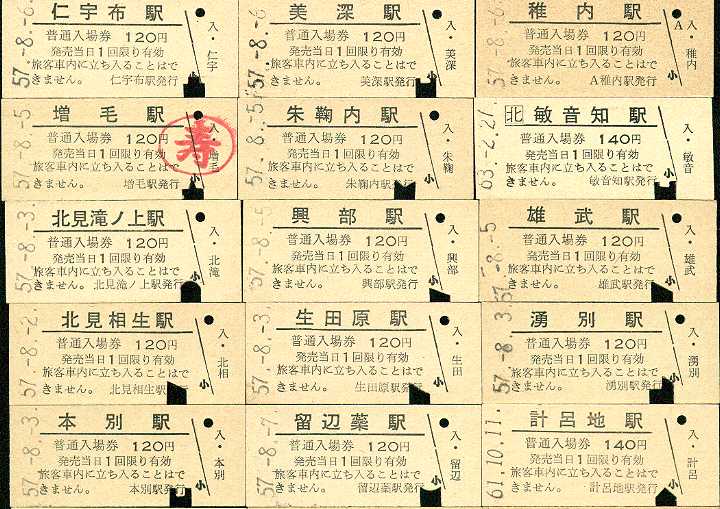 仁宇布駅
普通入場券 120円
発売当日1回限り有効
旅客車内に立ち入ることはで
きません。 仁宇布駅発行
57.-8.-6
入・仁宇
小
美深駅
普通入場券 120円
発売当日1回限り有効
旅客車内に立ち入ることはで
きません。 美深駅発行
57.-8.-6
入・美深
小
稚内駅
普通入場券 120円
発売当日1回限り有効
旅客車内に立ち入ることはで
きません。 A稚内駅発行
57.-8.-6
A
入・稚内
小
増毛駅
普通入場券 120円
発売当日1回限り有効
旅客車内に立ち入ることはで
きません。 増毛駅発行
57.-8.-5
寿
入・増毛
小
朱鞠内駅
普通入場券 120円
発売当日1回限り有効
旅客車内に立ち入ることはで
きません。 朱鞠内駅発行
57.-8.-5
入・朱鞠
小
北 敏音知駅
普通入場券 140円
発売当日1回限り有効
旅客車内に立ち入ることはで
きません。 敏音知駅発行
63.-2.21
入・敏音
小
北見滝ノ上駅
普通入場券 120円
発売当日1回限り有効
旅客車内に立ち入ることはで
きません。 北見滝ノ上駅発行
57.-8.-3
入・北滝
小
興部駅
普通入場券 120円
発売当日1回限り有効
旅客車内に立ち入ることはで
きません。 興部駅発行
57.-8.-5
入・興部
小
雄武駅
普通入場券 120円
発売当日1回限り有効
旅客車内に立ち入ることはで
きません。 雄武駅発行
57.-8.-5
入・雄武
小
北見相生駅
普通入場券 120円
発売当日1回限り有効
旅客車内に立ち入ることはで
きません。 北見相生駅発行
57.-8.-2
入・北相
小
生田原駅
普通入場券 120円
発売当日1回限り有効
旅客車内に立ち入ることはで
きません。 生田原駅発行
57.-8.-3
入・生田
小
湧別駅
普通入場券 120円
発売当日1回限り有効
旅客車内に立ち入ることはで
きません。 湧別駅発行
57.-8.-3
入・湧別
小
本別駅
普通入場券 120円
発売当日1回限り有効
旅客車内に立ち入ることはで
きません。 本別駅発行
57.-8.-3
入・本別
小
留辺蘂駅
普通入場券 120円
発売当日1回限り有効
旅客車内に立ち入ることはで
きません。 留辺蘂駅発行
57.-8.-7
入・留辺
小
計呂地駅
普通入場券 140円
発売当日1回限り有効
旅客車内に立ち入ることはで
きません。 計呂地駅発行
61.10.11
入・計呂
小